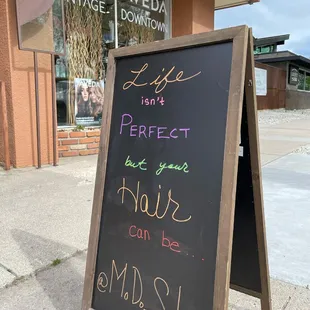 VEDA
NTAGE.
DOWNTOWN
Life
isn't
PERFECT
but your
Hair
can be...
@M.D.S!